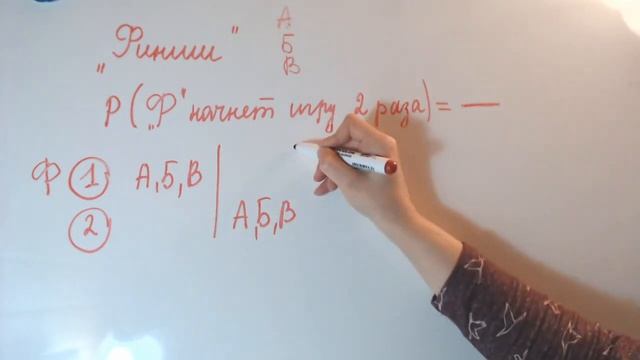 „Финиш" А
Б
В
Р („Ф" начнет игру 2 раза) = —
Ф 1 А, Б, В
2 А, Б, В